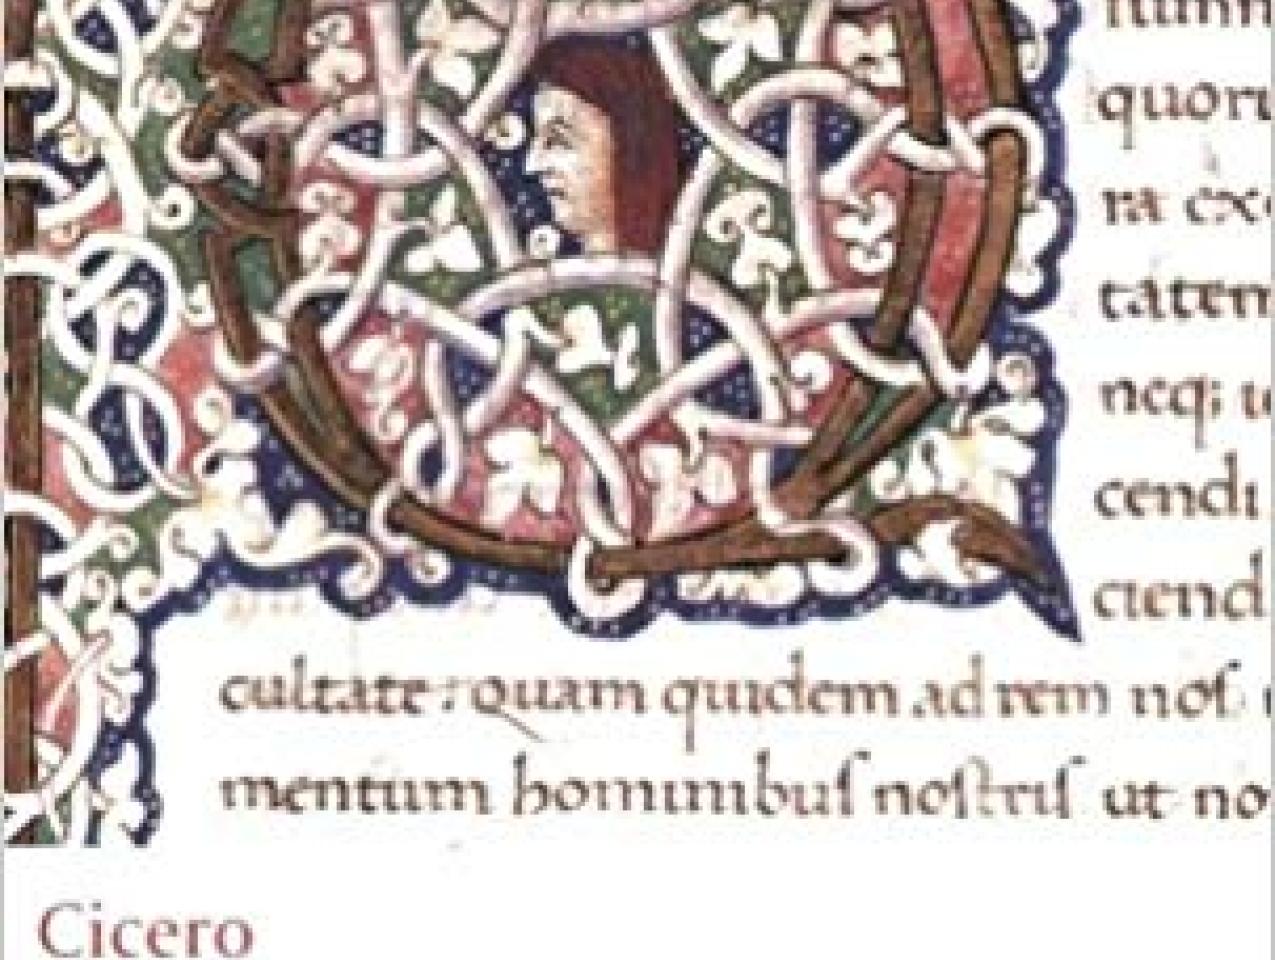 quoru
ra exe
tatem
neq; te
cendi
ciend
cultate: quam quidem ad rem nos
mentum hominibus nostris ut no
Cicero